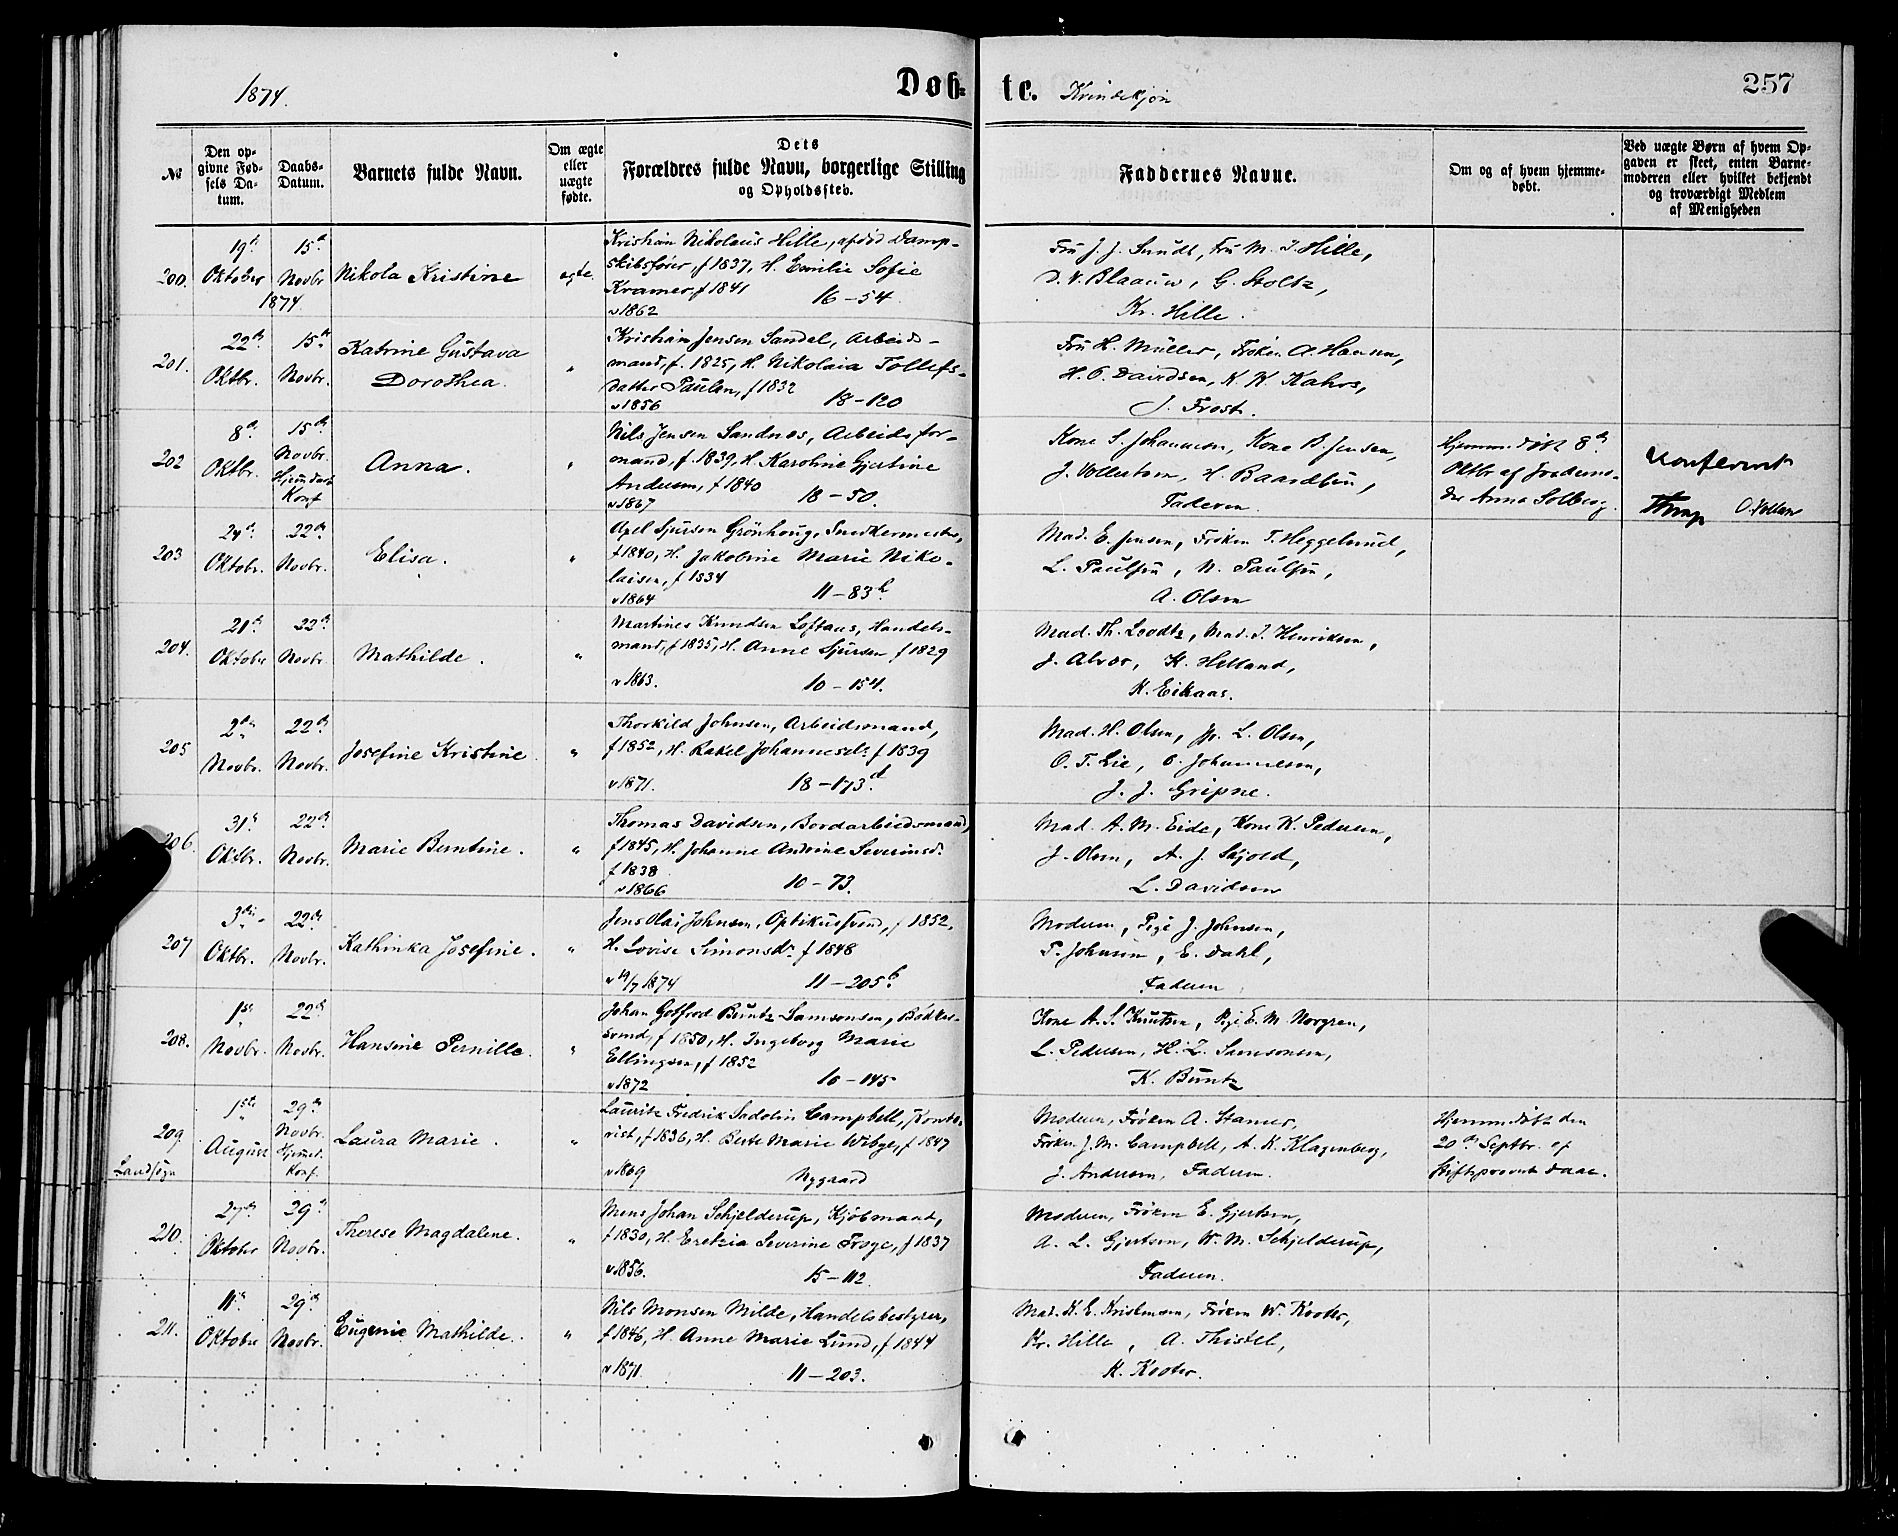 1874.
Døb-
te.
Kvindekjøn
257
№
Den opgivne Fødsels Datum.
Daabs-Datum.
Barnets fulde Navn.
Om ægte eller uægte fødte.
Dets Forældres fulde Navn, borgerlige Stilling og Opholdssted.
Faddernes Navne.
Om og af hvem hjemmedøbt.
Ved uægte Børn af hvem Opgaven er skeet, enten Barnemoderen eller hvilket bekjendt og troværdigt Medlem af Menigheden
200.
19de Oktober 1874.
15de Novbr
Nikola Kristine
ægte
Kristian Nikolaus Hille, afdød Damp-
skibsfører, f 1837, H. Emilie Sofie
Kramer, f 1841
v 1862
16-54
Fru J. J. Smidt, Fru M. J. Hille,
D. V. Blaauw, G. Stoltz,
Kr. Hille.
201.
22de Oktbr.
15de Novbr.
Katrine Gustava
Dorothea.
"
Kristian Jensen Sandal, Arbeids-
mand, f. 1825, H. Nikolaia Tollefs-
datter Paulsen, f 1832
v 1856
18-120
Fru H. Müller, Frøken A. Hansen,
H. O. Davidsen, K. K. Kahrs,
J. Frost.
202
8de Oktbr.
15de Novbr. Hjemdøbt Konf
Anna.
"
Nils Jensen Sandnes, Arbeidsfor-
mand, f. 1839, H. Karoline Gjertine
Andersen, f 1840
v 1867
18-50.
Kone S. Johannesen, Kone B. Jensen,
J. Vollertsen, H. Baardsen,
Faderen.
Hjemmedøbt 8de
Oktbr af Jordemo-
dre Anna Solberg.
Konfereret
203
24de Oktobr.
22de Novbr.
Elisa.
"
Axel Sjursen Grönhoug, Snedkermester,
f 1840, H. Jakobine Marie Niko-
laisen, f 1834
v 1864
11-83b.
Mad. E. Jensen, Frøken T. Heggelund,
L. Paulsen, N. Paulsen,
A. Olsen
204.
21de Oktober
22de Novbr
Mathilde.
"
Martines Knudsen Loftaas, Handels-
mand, f 1835, H. Anne Sjursen f 1829
v 1863.
10-154.
Mad. Th. Loodtz, Mad. J. Henriksen,
J. Alver, K. Helland,
K. Eikaas.
205
2den Novbr.
22de Novbr.
Josefine Kristine.
"
Thorkild Johnsen, Arbeidsmand,
f 1852, H. Rakel Johannesdr f 1839
v 1871.
18-173d.
Mad. H. Olsen, Jfr. L. Olsen,
O. T. Lie, O. Johannesen,
J. J. Gripne.
206.
31te Oktbr.
22de Novbr.
Marie Berntine.
"
Thomas Davidsen, Bordarbeidsmand,
f 1845, H. Johanne Andrine Severinsd.
f 1838
v 1866
10-73.
Mad. A. M. Eide, Kone K. Pedersen,
J. Olsen, A. J. Sajold,
L. Davidsen
207
3die Oktbr.
22de Novbr.
Kathinka Josefine.
"
Jens Olai Johnsen, Optikussvend, f 1852,
H. Lovise Simonsdr. f 1848
v 19/7 1874
11-205b
Moderen, Pige J. Johnsen,
P. Johnsen, E. Dahl,
Faderen
208.
1ste Novbr.
22de Novbr.
Hansine Pernille.
"
Johan Gotfred Buntz Samsonsen, Bödker-
svend, f 1850, H. Ingeborg Marie
Ellingsen, f 1852
v 1872
10-145
Kone A. S. Knutsen, Pige E. M. Norgren,
L. Pedersen, H. L. Samsonsen,
K. Buntz
209
Landsogn
1ste August
29de Novbr. Hjemmed. Konf.
Laura Marie.
"
Lauritz Fredrik Sadolin Campbell, Konto-
rist, f 1836, H. Berte Marie Wibye, f 1847
v 1869
Nygaard
Moderen, Frøken A. Stamer,
Frøken J. M. Campbell, A. K. Klagenberg,
J. Andersen, Faderen.
Hjemmedøbt den
20de Septbr. af
Stiftsprovst Daae.
210.
27de Oktober
29de Novbr.
Therese Magdalene.
"
Mens Johan Schjelderup, Kjöbmand,
f 1830, H. Eretzia Severine Troye, f 1837
v 1856.
15-112.
Moderen, Frøken E. Gjertsen,
A. L. Gjertsen, W. M. Schjelderup,
Faderen.
211.
11te Oktober
29de Novbr.
Eugenie Mathilde.
"
Nils Monsen Milde, Handelsbestyrer,
f 1846, H. Anne Marie Lund, f 1844
v 1871
11-203.
Mad. K. E. Kristensen, Frøken W. Kooter,
Kr. Hille, A. Thistel,
K. Kooter.